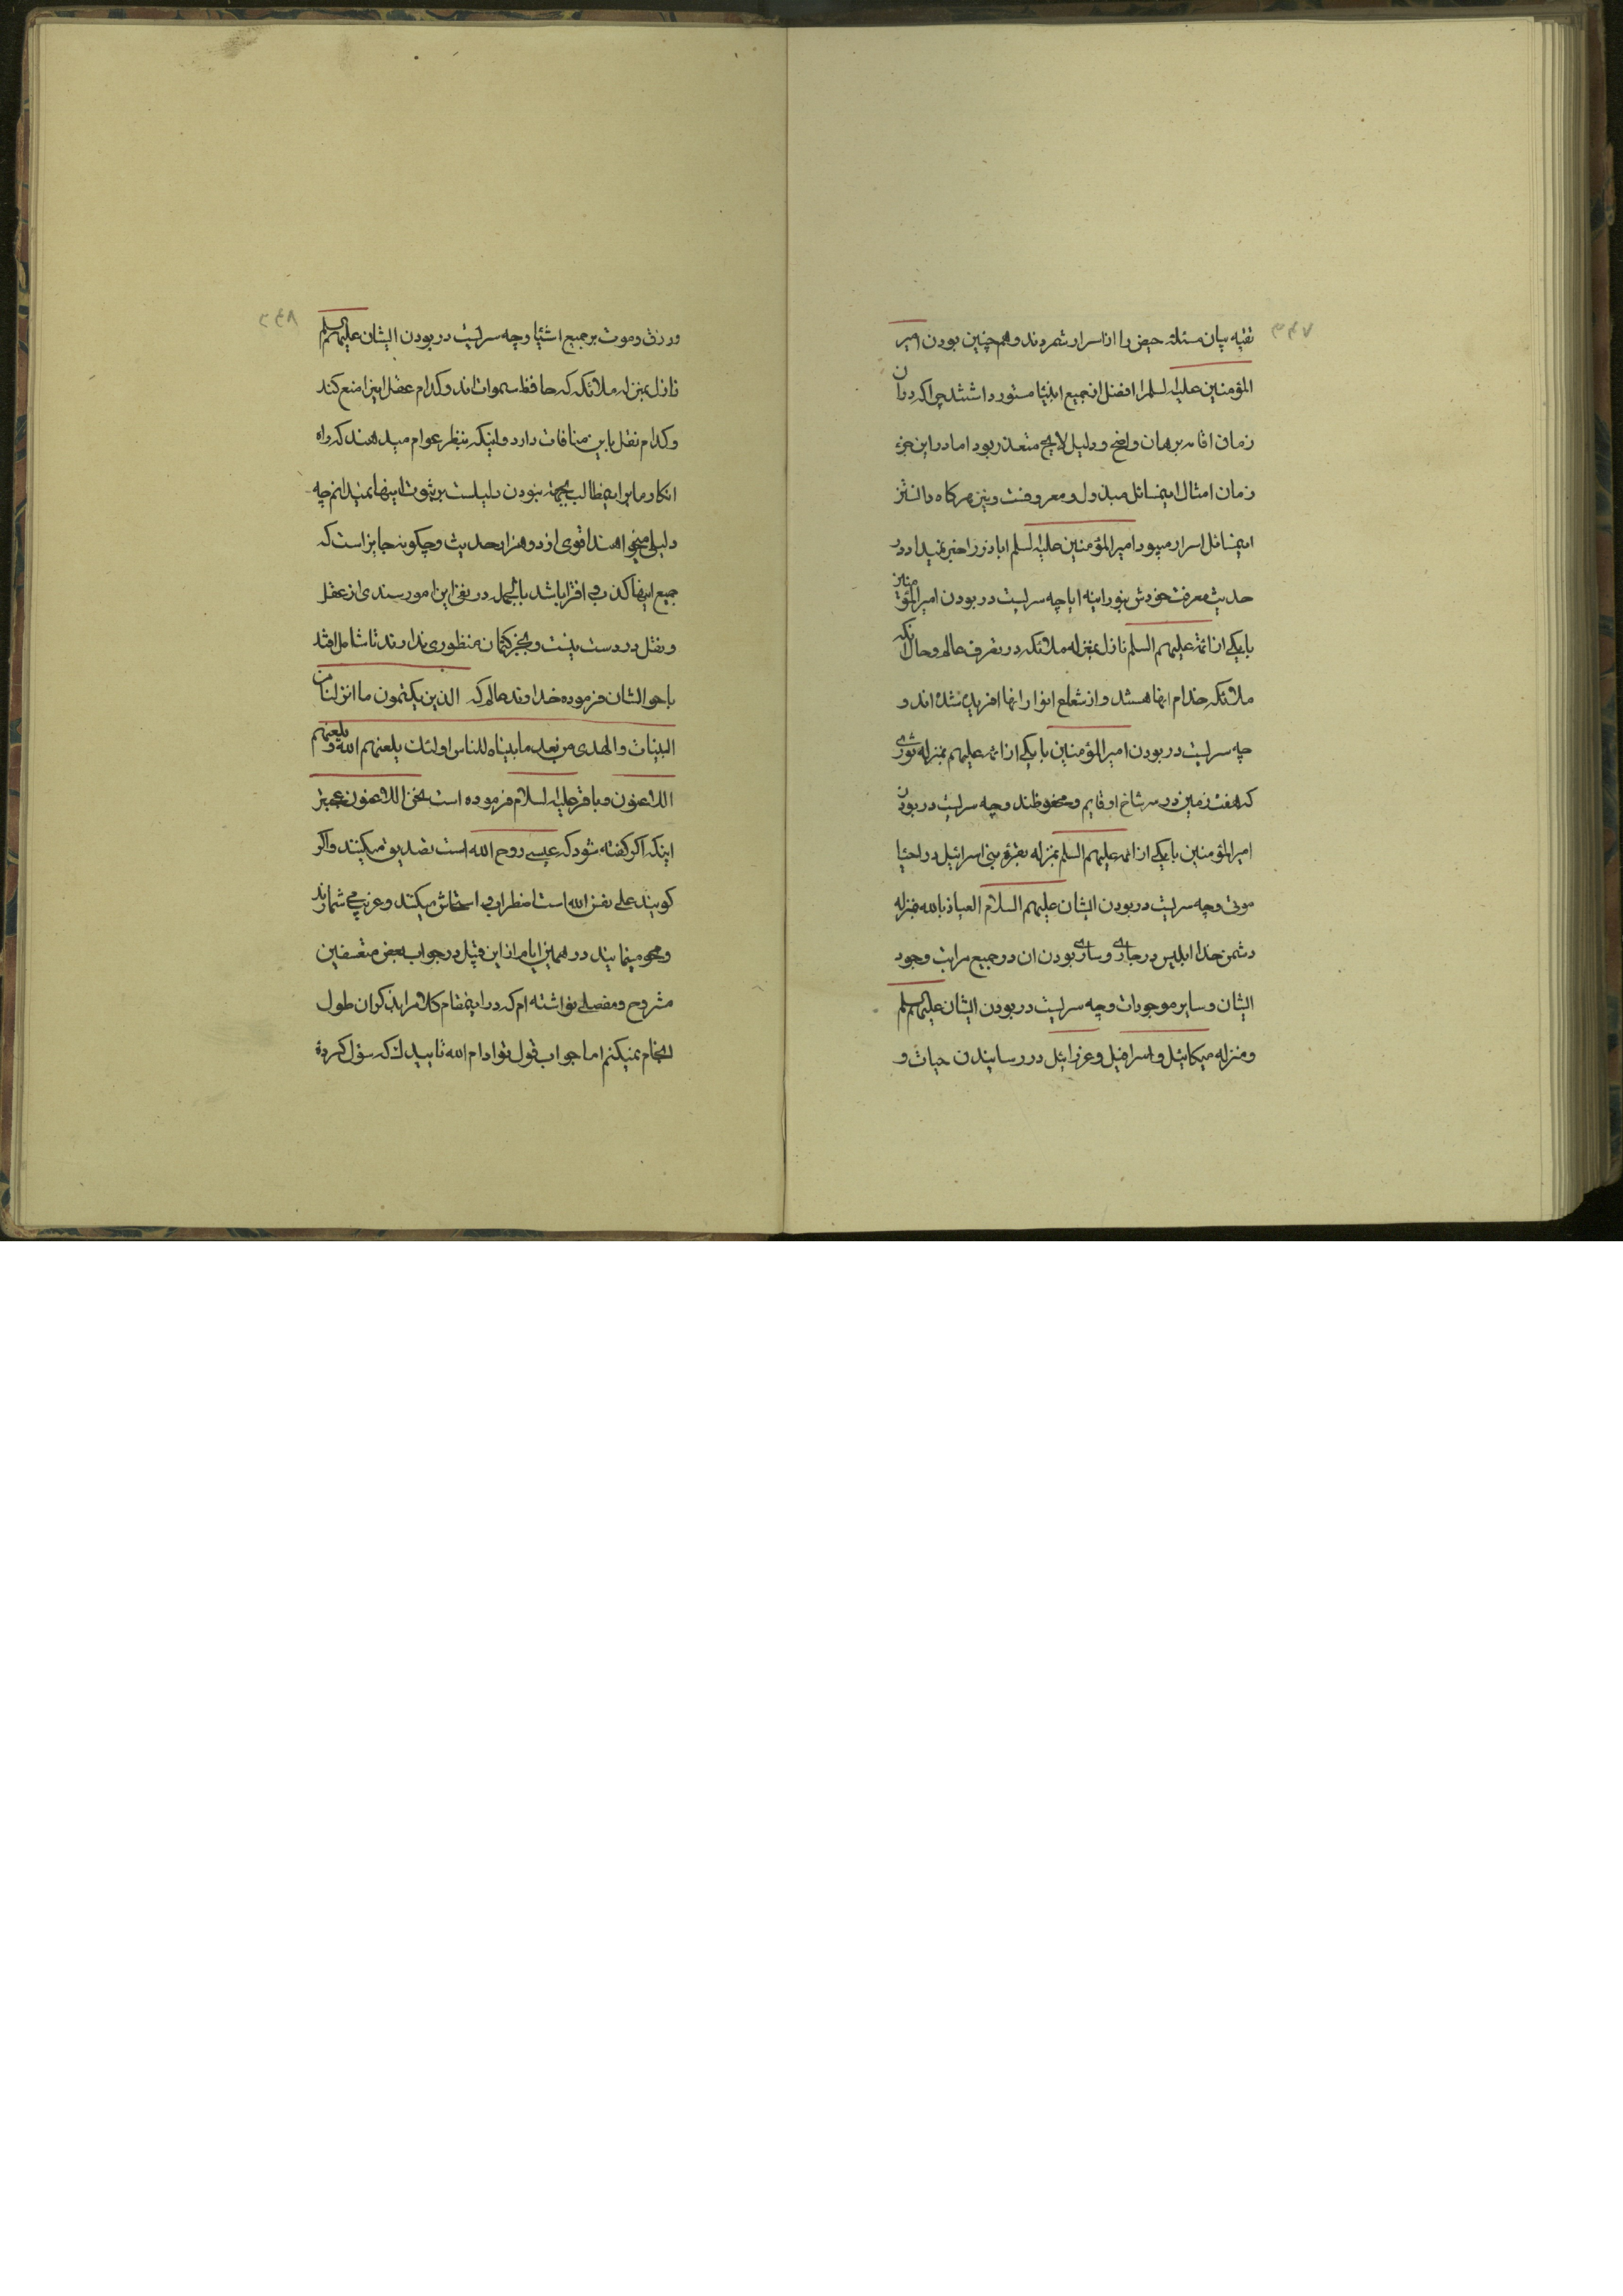 ۳۴۷
تقیه بیان مسئلهٔ حیض را از اسرار شمردند و همچنین بودن امیر
المؤمنین علیه السلم را افضل از جمیع انبیا مستور داشتند چرا که در ان
زمان اقامه برهان واضح و دلیل لایح متعذر بود اما در این جزء
زمان امثال اینمسائل مبذول و معروفست و نیز هرگاه دانستن
اینمسائل اسرار میبود امیر المؤمنین علیه السلم اباذر را خبر نمیداد در
حدیث معرفت خودش بنورانیه ایا چه سریست در بودن امیر المؤمنین
یا یکی از ائمه علیهم السلم نازل بمنزله ملائکه در تصرف عالم و حال انکه
ملائکه خدام انها هستند و از شعاع انوار انها افریده شده اند و
چه سریست در بودن امیر المؤمنین یا یکی از ائمه علیهم بمنزله ثوری
که هفت زمین در سر شاخ او قایم و محفوظند و چه سریست در بودن
امیر المؤمنین یا یکی از ائمه علیهم السلم بمنزله بقرهٔ بنی اسرائیل در احیا
موتی و چه سریست در بودن ایشان علیهم السلام العیاذ بالله بمنزله
دشمن خدا ابلیس در جاری و ساری بودن ان در جمیع مراتب وجود
ایشان و سایر موجودات و چه سریست در بودن ایشان علیهم السلم
و منزله میکائیل و اسرافیل و عزرائیل در رسانیدن حیات و
۳۴۸
و رزق و موت بر جمیع اشیا و چه سریست در بودن ایشان علیهم السلم
نازل بمنزله ملائکه که حافظ سموات اند و کدام عقل اینرا منع کند
و کدام نقل باین منافات دارد و اینکه بنظر عوام میدهند که راه
انکار ما براینمطالب بجهة نبودن دلیلست بر ثبوت اینها نمیدانم چه
دلیلی میخواهند اقوی از دو هزار حدیث و چکونه جایز است که
جمیع اینها کذب و افترا باشد بالجمله در نفی این امور سندی از عقل
و نقل در دست نیست و بجز کتمان منظوری ندارند تا شامل افتد
باحوالشان فرموده خداوند عالم که الذین یکتمون ما انزلنا من
البینات والهدی من بعد ما بیناه للناس اولئک یلعنهم الله و یلعنهم
اللاعنون و باقر علیه السلام فرموده است نحن اللاعنون عجبتر
اینکه اکر کفته شود که عیسی روح الله است تصدیق میکنند و اکر
کویند علی نفس الله است اضطراب و استیحاش میکنند و غریب می شمارند
و محو مینمایند در همین ایام از این قبیل در جواب بعض متعسفین
مشروح و مفصلی نواشته ام که در اینمقام کلام را بذکر ان طول
لجام نمیکنم اما جواب قول تو ادام الله تاییدک که سؤال کردهٔ